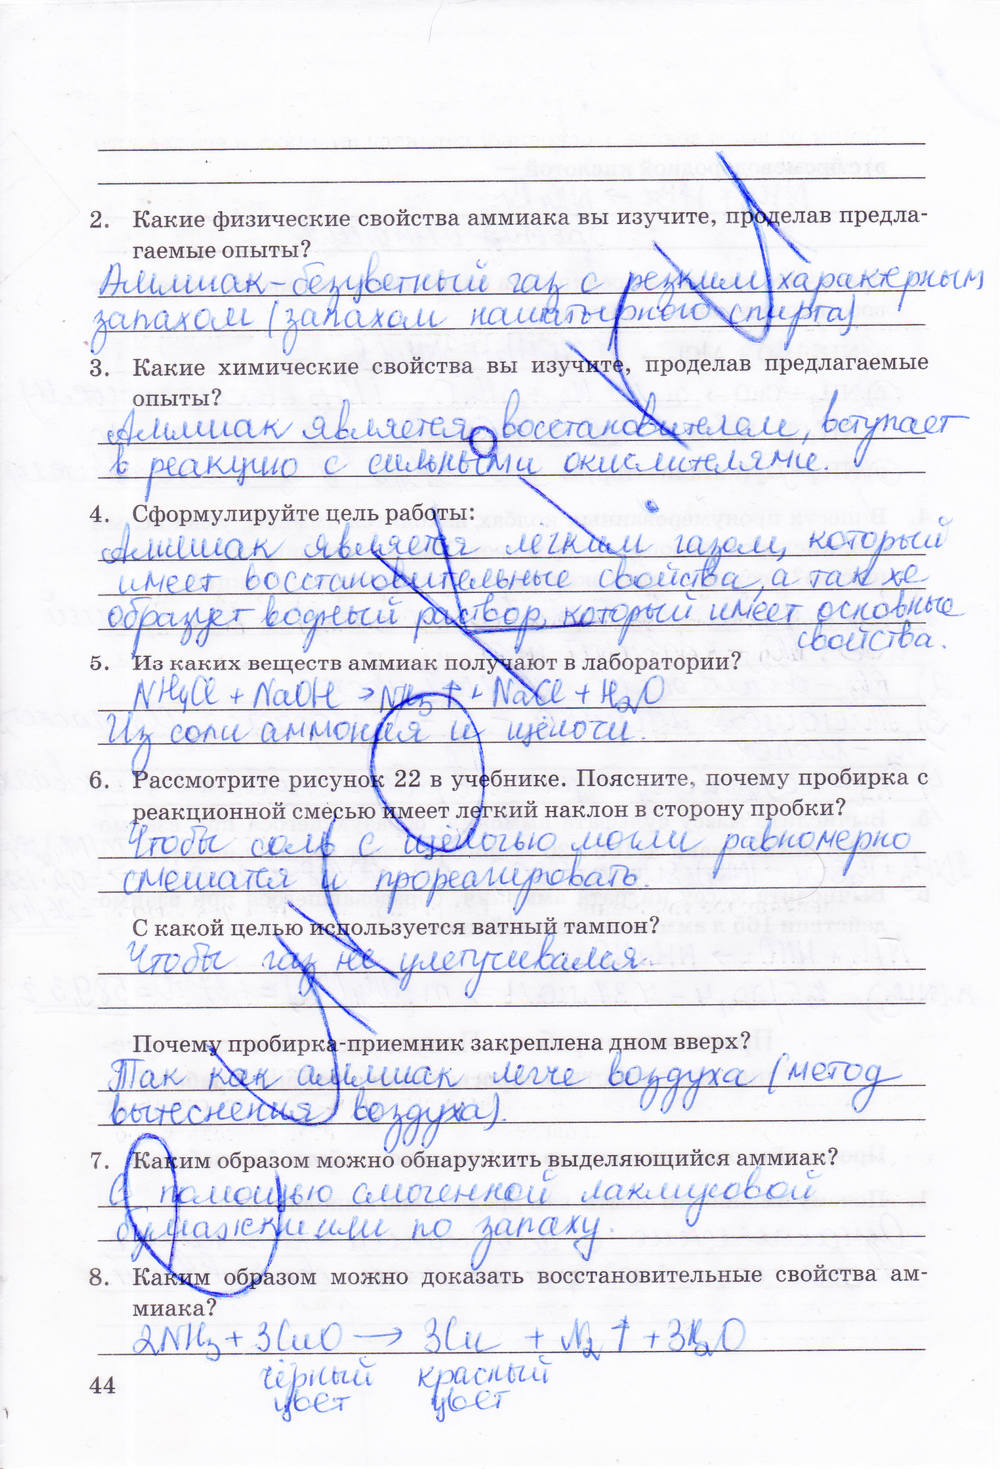 2. Какие физические свойства аммиака вы изучите, проделав предла-
гаемые опыты?
Аммиак - безцветный газ с резким характерным
запахом (запахом нашатырного спирта)
3. Какие химические свойства вы изучите, проделав предлагаемые
опыты?
Аммиак является восстановителем, вступает
в реакцию с сильными окислителями.
4. Сформулируйте цель работы:
Аммиак является легким газом, который
имеет восстановительные свойства, а также
образует водный раствор, который имеет основные
свойства.
5. Из каких веществ аммиак получают в лаборатории?
NH4Cl + NaOH → NH3 ↑ + NaCl + H2O
Из соли аммония и щёлочи.
6. Рассмотрите рисунок 22 в учебнике. Поясните, почему пробирка с
реакционной смесью имеет легкий наклон в сторону пробки?
Чтобы соль с щёлочью могли равномерно
смешатся и прореагировать.
С какой целью используется ватный тампон?
Чтобы газ не улетучивался.
Почему пробирка-приемник закреплена дном вверх?
Так как аммиак легче воздуха (метод
вытеснения воздуха).
7. Каким образом можно обнаружить выделяющийся аммиак?
С помощью смоченной лакмусовой
бумажки или по запаху.
8. Каким образом можно доказать восстановительные свойства ам-
миака?
2NH3 + 3CuO → 3Cu + N2 ↑ + 3H2O
чёрный красный
цвет цвет
44